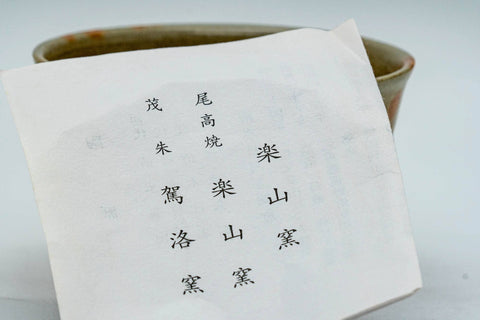 楽山窯
尾高焼
楽山窯
茂朱
駕洛窯